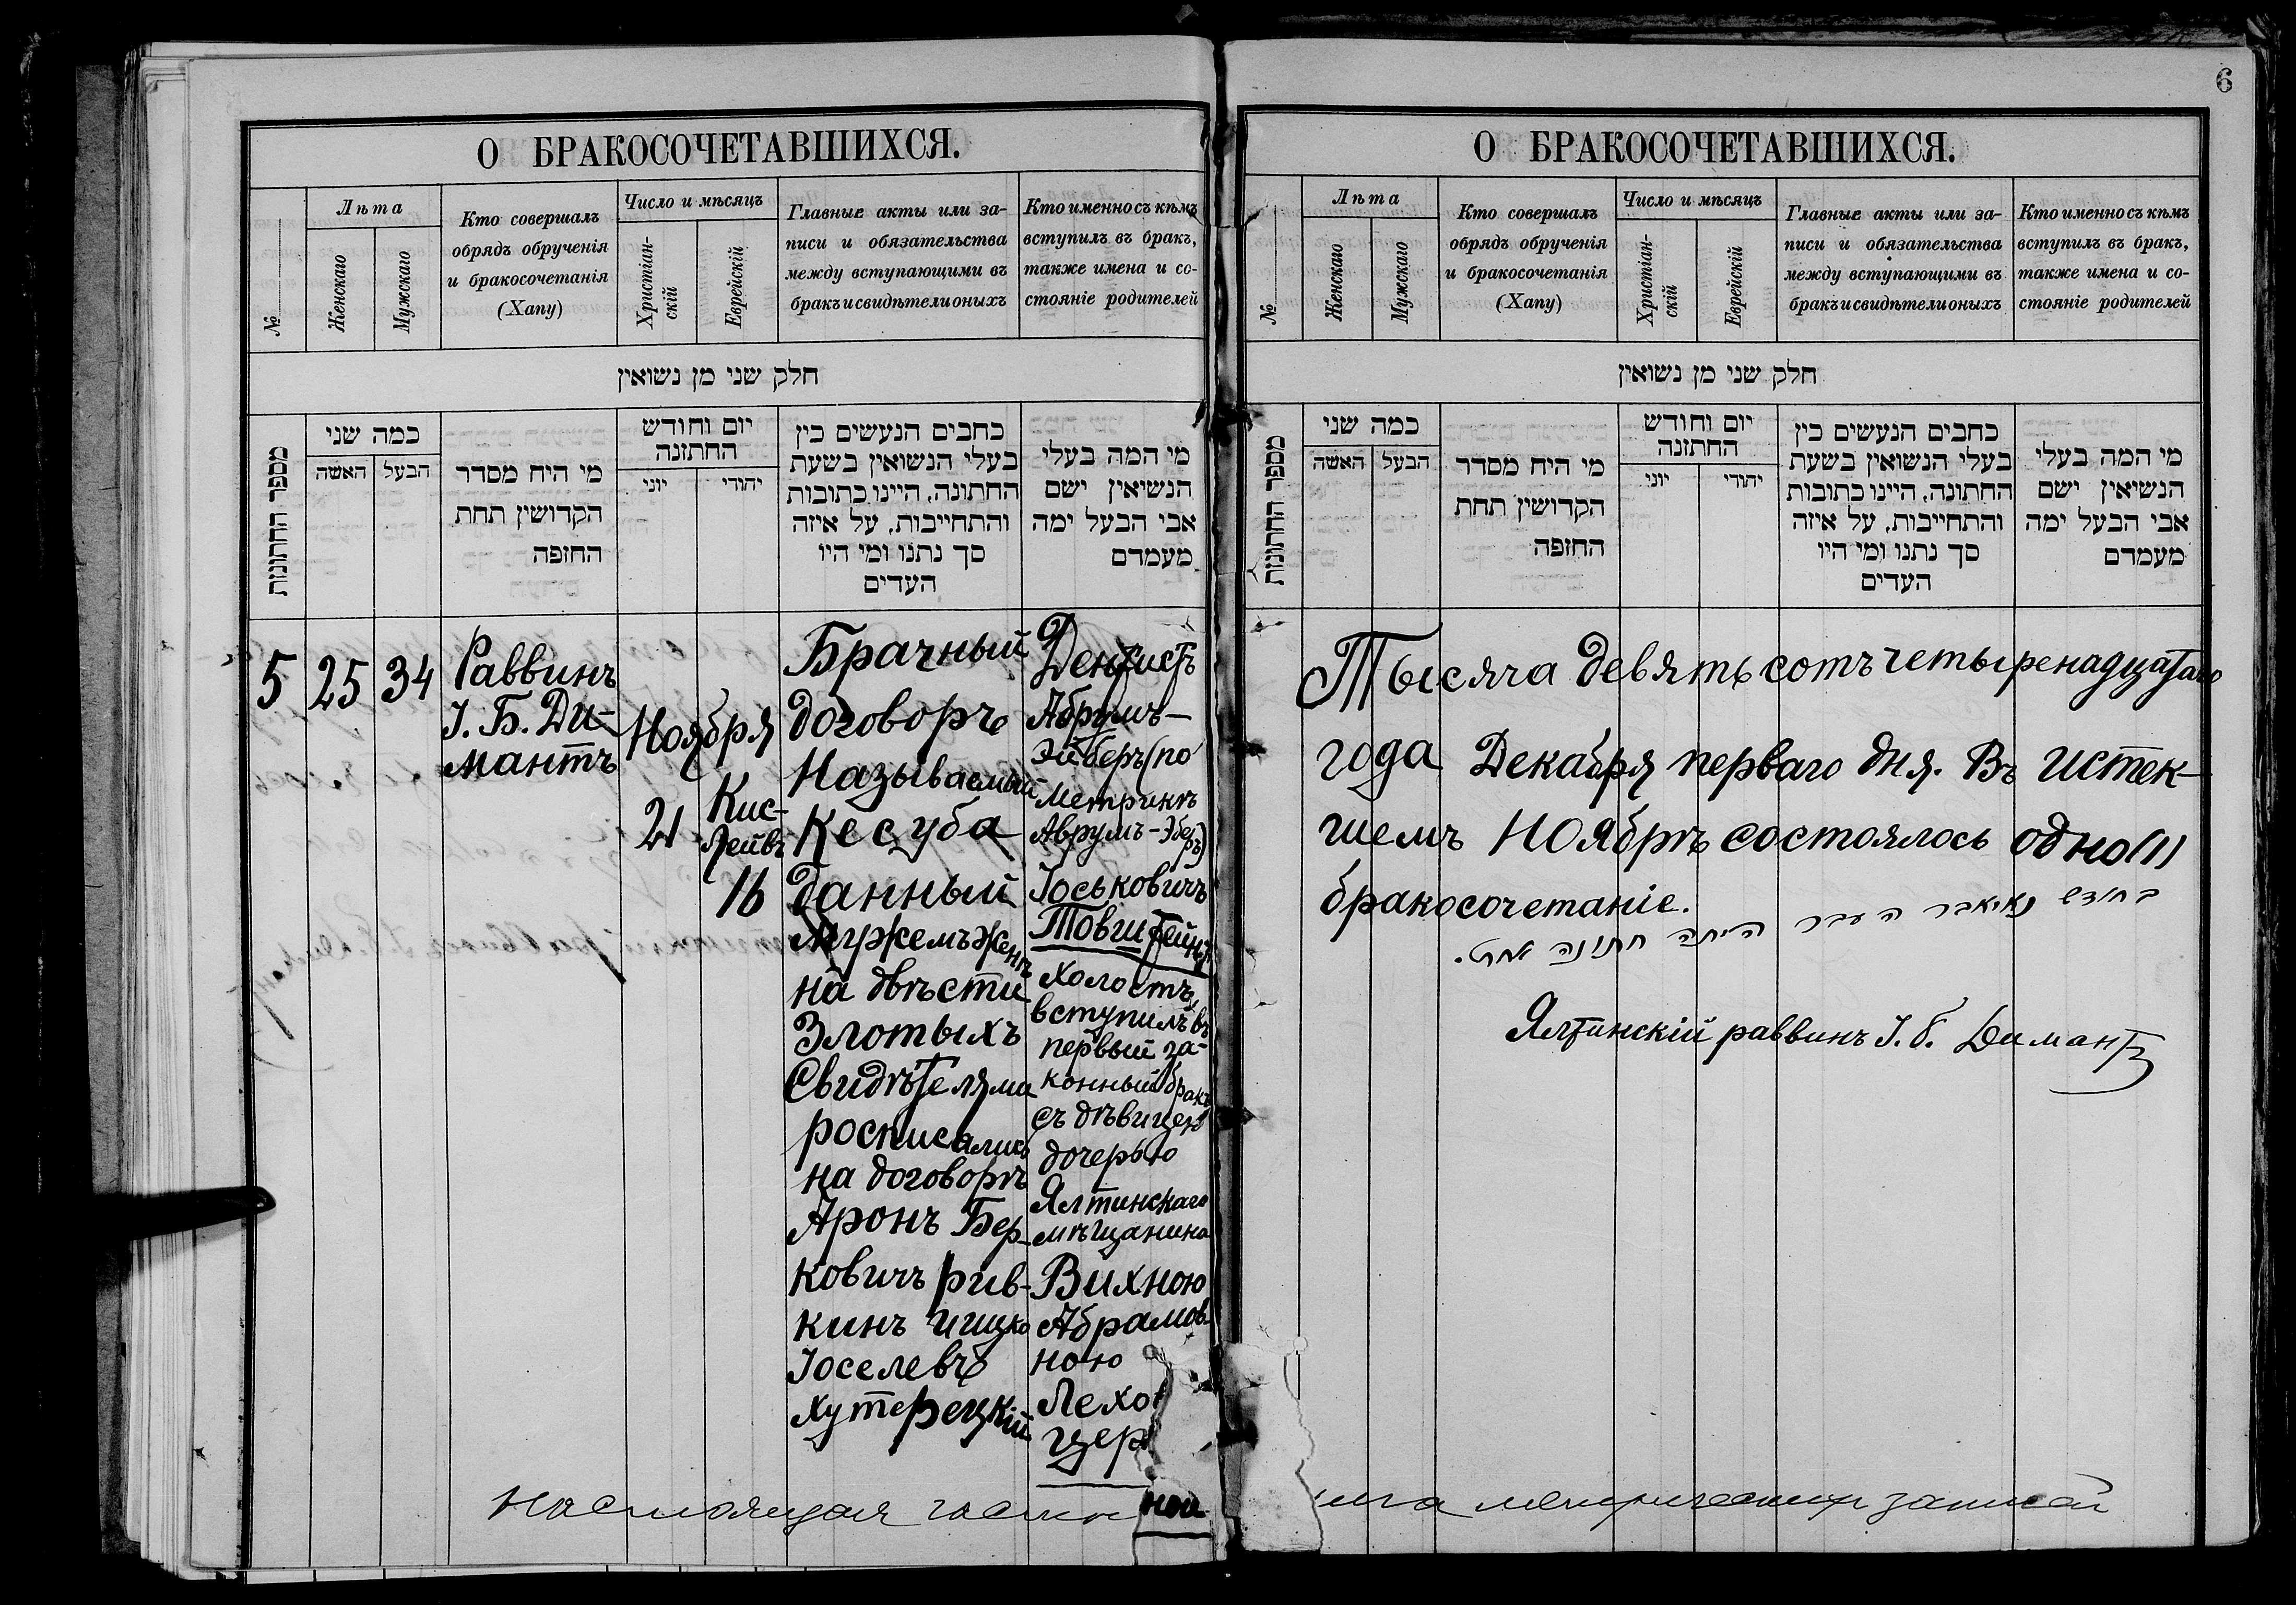 6
О БРАКОСОЧЕТАВШИХСЯ.
№
Лѣта
Женскаго
Мужскаго
Кто совершалъ
обрядъ обрученія
и бракосочетанія
(Хапу)
Число и мѣсяцъ
Христіан-
скій
Еврейскій
Главные акты или за-
писи и обязательства
между вступающими въ
бракъ и свидѣтели оныхъ
Кто именно съ кѣмъ
вступилъ въ бракъ,
также имена и со-
стояніе родителей
חלק שני מן נשואין
מספר החתונות
כמה שני
האשה
הבעל
מי היח מסדר
הקדושין תחת
החזפה
יום וחודש
החתזנה
יוני
יהודי
כחבים הנעשים כין
בעלי הנשואין בשעת
החתונה, היינו כתובות
והתחייבות, על איזה
סך נתנו ומי היו
העדים
מי המה בעלי
הנשיאין ישם
אבי הבעל ימה
מעמדם
5
25
34
Раввинъ
І. Б. Ди-
мантъ
Ноября
21
Кис-
лейвъ
16
Брачный
договоръ
Называемый
Кесуба
данный
Мужемъ женѣ
на двѣсти
Злотыхъ
Свидѣтелями
росписались
на договорѣ
Аронъ Бер-
ковичъ Рив-
кинъ Ицко
Іоселевъ
Хутерецкій
Дентистъ
Абрумъ-
Эйберъ (по
метрикѣ
Аврумъ-Эберъ)
Іоськовичъ
Товштейнъ
холостъ,
вступилъ въ
первый за-
конный бракъ
съ дѣвицею
дочерью
Ялтинскаго
мѣщанина
Вихною
Абрамов-
ною
Лехо
цер
ной
Настоящая
О БРАКОСОЧЕТАВШИХСЯ.
№
Лѣта
Женскаго
Мужскаго
Кто совершалъ
обрядъ обрученія
и бракосочетанія
(Хапу)
Число и мѣсяцъ
Христіан-
скій
Еврейскій
Главные акты или за-
писи и обязательства
между вступающими въ
бракъ и свидѣтели оныхъ
Кто именно съ кѣмъ
вступилъ въ бракъ,
также имена и со-
стояніе родителей
חלק שני מן נשואין
מספר החתונות
כמה שני
האשה
הבעל
מי היח מסדר
הקדושין תחת
החזפה
יום וחודש
החתזנה
יוני
יהודי
כחבים הנעשים כין
בעלי הנשואין בשעת
החתונה, היינו כתובות
והתחייבות, על איזה
סך נתנו ומי היו
העדים
מי המה בעלי
הנשיאין ישם
אבי הבעל ימה
מעמדם
Тысяча девятьсотъ четыренадцатаго
года Декабря перваго дня. Въ истек-
шемъ Ноябрѣ состоялось одно (1)
бракосочетаніе.
בחודש נאיאבר העבר היתה חתונה אחת.
Ялтинскій раввинъ І. Б. Димантъ
метрическихъ записей